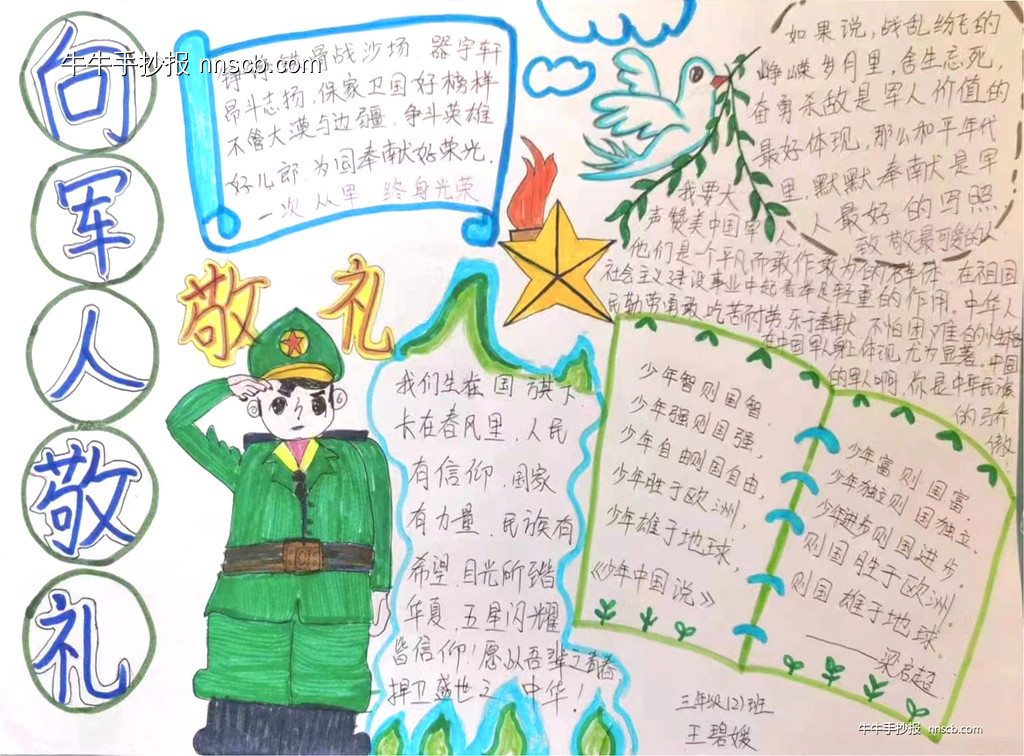 向军人敬礼
牛牛手抄报 nnscb.com
铮铮铁骨战沙场.器宇轩
昂斗志扬,保家卫国好榜样
不管大漠与边疆,争斗英雄
好儿郎.为国奉献好荣光.
一次从军,终身光荣
敬礼
如果说,战乱纷飞的
峥嵘岁月里,舍生忘死,
奋勇杀敌是军人价值的
最好体现,那么和平年代
里,默默奉献是军
人最好的写照
致敬最可爱的人
我要大
声赞美中国军人,
他们是一个平凡而敢作敢为的群体 在祖国
社会主义建设事业中起着举足轻重的作用.中华人
民勤劳勇敢,吃苦耐劳,乐于奉献 不怕困难的小性格
在中国军人身上体现 尤为显著.中国
的军人啊,你是中华民族
的骄
傲
我们生在国旗下
长在春风里.人民
有信仰.国家
有力量.民族有
希望.目光所谐
华夏.五星闪耀
皆信仰!愿以吾辈之青春
捍卫盛世之中华!
少年智则国智,
少年强则国强,
少年自由则国自由,
少年胜于欧洲,
少年雄于地球,
《少年中国说》
少年富则国富.
少年独立则国独立.
少年进步则国进步.
则国胜于欧洲.
则国雄于地球.
——梁启超
三年级(2)班
王碧媛
牛牛手抄报 nnscb.com